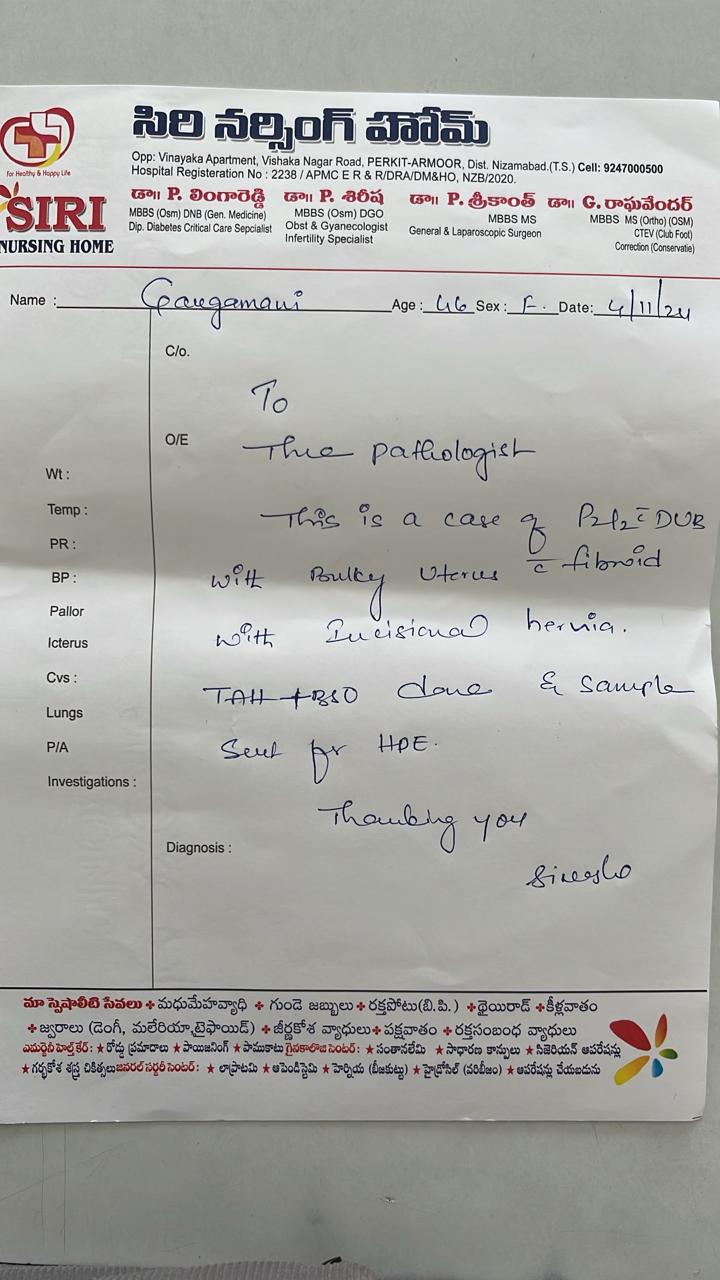 సిరి నర్సింగ్ హోమ్
for Healthy & Happy Life
Opp: Vinayaka Apartment, Vishaka Nagar Road, PERKIT-ARMOOR, Dist. Nizamabad.(T.S.) Cell: 9247000500
Hospital Registeration No : 2238 / APMC E R & R/DRA/DM&HO, NZB/2020.
SIRI
NURSING HOME
డా|| P. లింగారెడ్డి డా|| P. శిరీష డా|| P. శ్రీకాంత్ డా|| G. రాఘవేందర్
MBBS (Osm) DNB (Gen. Medicine) MBBS (Osm) DGO MBBS MS MBBS MS (Ortho) (OSM)
Dip. Diabetes Critical Care Sepcialist Obst & Gyanecologist General & Laparoscopic Surgeon CTEV (Club Foot)
Infertility Specialist Correction (Conservatie)
Name : Gangamani Age : 46 Sex : F. Date: 4/11/24
C/o.
To
O/E The pathologist
Wt :
Temp : This is a case of P2L2 c̄ DUB
PR :
BP : with Bulky Uterus c̄ fibroid
Pallor
Icterus with Incisional hernia.
Cvs :
TAH + BSO done & sample
Lungs
P/A Sent for HPE.
Investigations :
Thanking you
Diagnosis :
మా స్పెషాలీటి సేవలు + మధుమేహవ్యాధి + గుండె జబ్బులు + రక్తపోటు(బి.పి.) + థైయిరాడ్ + కీళ్లవాతం
+ జ్వరాలు (డెంగీ, మలేరియా,టైఫాయిడ్) + జీర్ణకోశ వ్యాధులు + పక్షవాతం + రక్తసంబంధ వ్యాధులు
ఎమర్జెన్సీ హెల్త్ కేర్: ★ రోడ్డు ప్రమాదాలు ★ పాయిజనింగ్ ★ పాముకాటు గైనకాలాజి సెంటర్: ★ సంతానలేమి ★ సాధారణ కాన్పులు ★ సిజెరియన్ ఆపరేషన్లు
★ గర్భకోశ శస్త్ర చికిత్సలు జనరల్ సర్జరీ సెంటర్: ★ లాప్రొటమి ★ అపెండిస్టెమి ★ హెర్నియ (బీజకుట్టు) ★ హైడ్రోసిల్ (వరిబీజం) ★ ఆపరేషన్లు చేయబడును